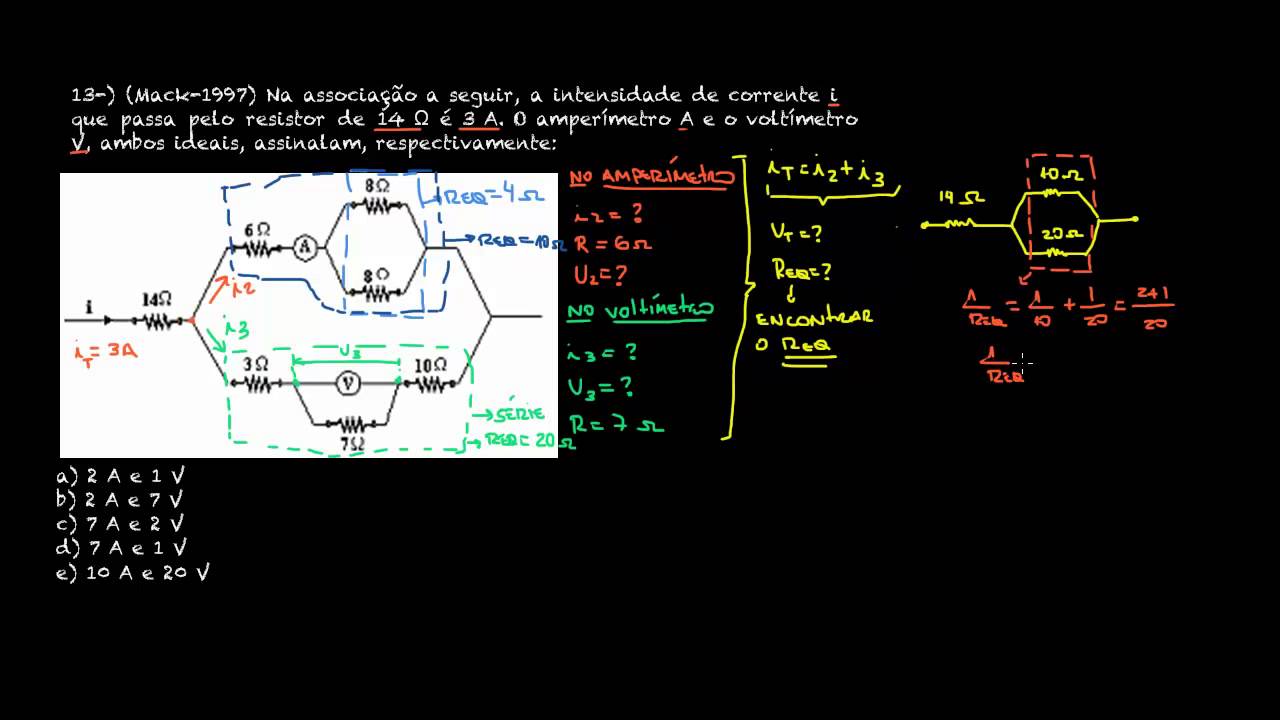 13-) (Mack-1997) Na associação a seguir, a intensidade de corrente i
que passa pelo resistor de 14 Ω é 3 A. O amperímetro A e o voltímetro
V, ambos ideais, assinalam, respectivamente:
8Ω
REQ = 4 Ω
6Ω
A
REQ = 10 Ω
8Ω
i2
i
14Ω
iT = 3A
i3
U3
3Ω
V
10Ω
7Ω
SÉRIE
REQ = 20 Ω
NO AMPERÍMETRO
i2 = ?
R = 6Ω
U2 = ?
NO VOLTÍMETRO
i3 = ?
U3 = ?
R = 7 Ω
iT = i2 + i3
UT = ?
REQ = ?
ENCONTRAR
O REQ
14 Ω
10 Ω
20 Ω
1/REQ = 1/10 + 1/20 = 2+1/20
1/REQ
a) 2 A e 1 V
b) 2 A e 7 V
c) 7 A e 2 V
d) 7 A e 1 V
e) 10 A e 20 V